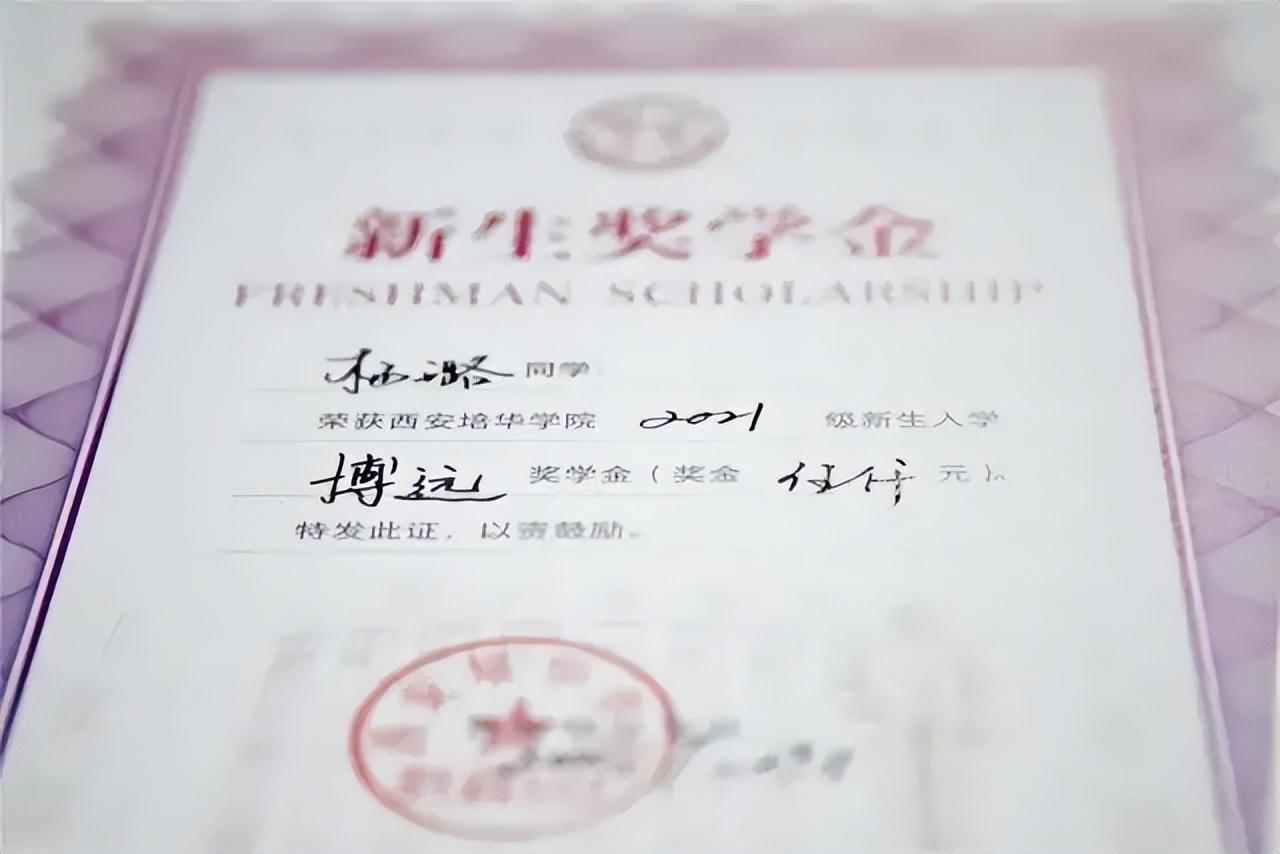 新生奖学金
FRESHMAN SCHOLARSHIP
杨璐同学
荣获西安培华学院 2021 级新生入学
博远 奖学金（奖金 伍仟 元）。
特发此证，以资鼓励。